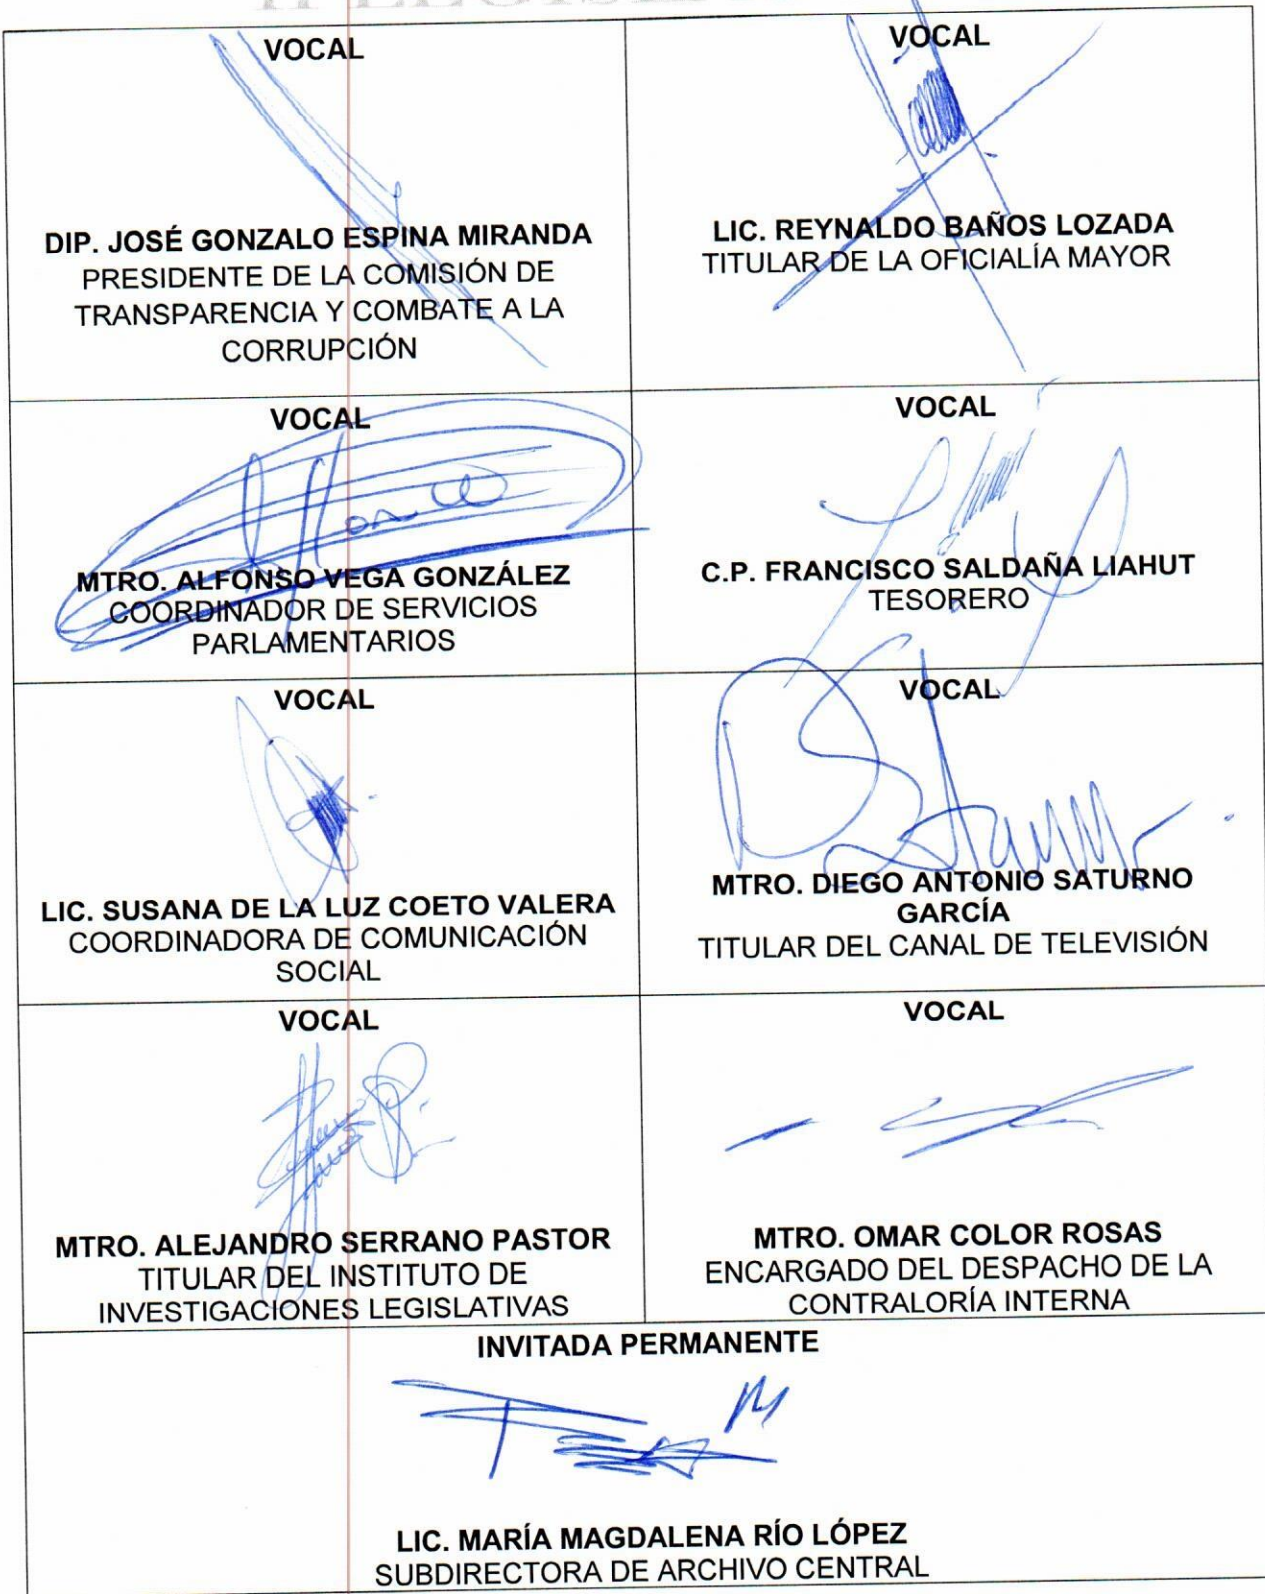 VOCAL
DIP. JOSÉ GONZALO ESPINA MIRANDA
PRESIDENTE DE LA COMISIÓN DE
TRANSPARENCIA Y COMBATE A LA
CORRUPCIÓN
VOCAL
LIC. REYNALDO BAÑOS LOZADA
TITULAR DE LA OFICIALÍA MAYOR
VOCAL
MTRO. ALFONSO VEGA GONZÁLEZ
COORDINADOR DE SERVICIOS
PARLAMENTARIOS
VOCAL
C.P. FRANCISCO SALDAÑA LIAHUT
TESORERO
VOCAL
LIC. SUSANA DE LA LUZ COETO VALERA
COORDINADORA DE COMUNICACIÓN
SOCIAL
VOCAL
MTRO. DIEGO ANTONIO SATURNO
GARCÍA
TITULAR DEL CANAL DE TELEVISIÓN
VOCAL
MTRO. ALEJANDRO SERRANO PASTOR
TITULAR DEL INSTITUTO DE
INVESTIGACIONES LEGISLATIVAS
VOCAL
MTRO. OMAR COLOR ROSAS
ENCARGADO DEL DESPACHO DE LA
CONTRALORÍA INTERNA
INVITADA PERMANENTE
LIC. MARÍA MAGDALENA RÍO LÓPEZ
SUBDIRECTORA DE ARCHIVO CENTRAL